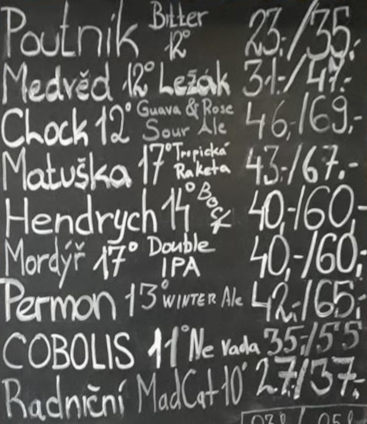 Poutník Bitter 12° 23,-/35,-
Medvěd 12° Ležák 31,-/47,-
Chock 12° Guava & Rose Sour Ale 46,-/69,-
Matuška 17° Tropická Raketa 43,-/67.-
Hendrych 14° Bock 40,-/60,-
Mordýř 17° Double IPA 40,-/60,-
Permon 13° WINTER Ale 42,-/65,-
COBOLIS 11° Nevada 35,-/55
Radniční MadCat 10° 27,-/37,-